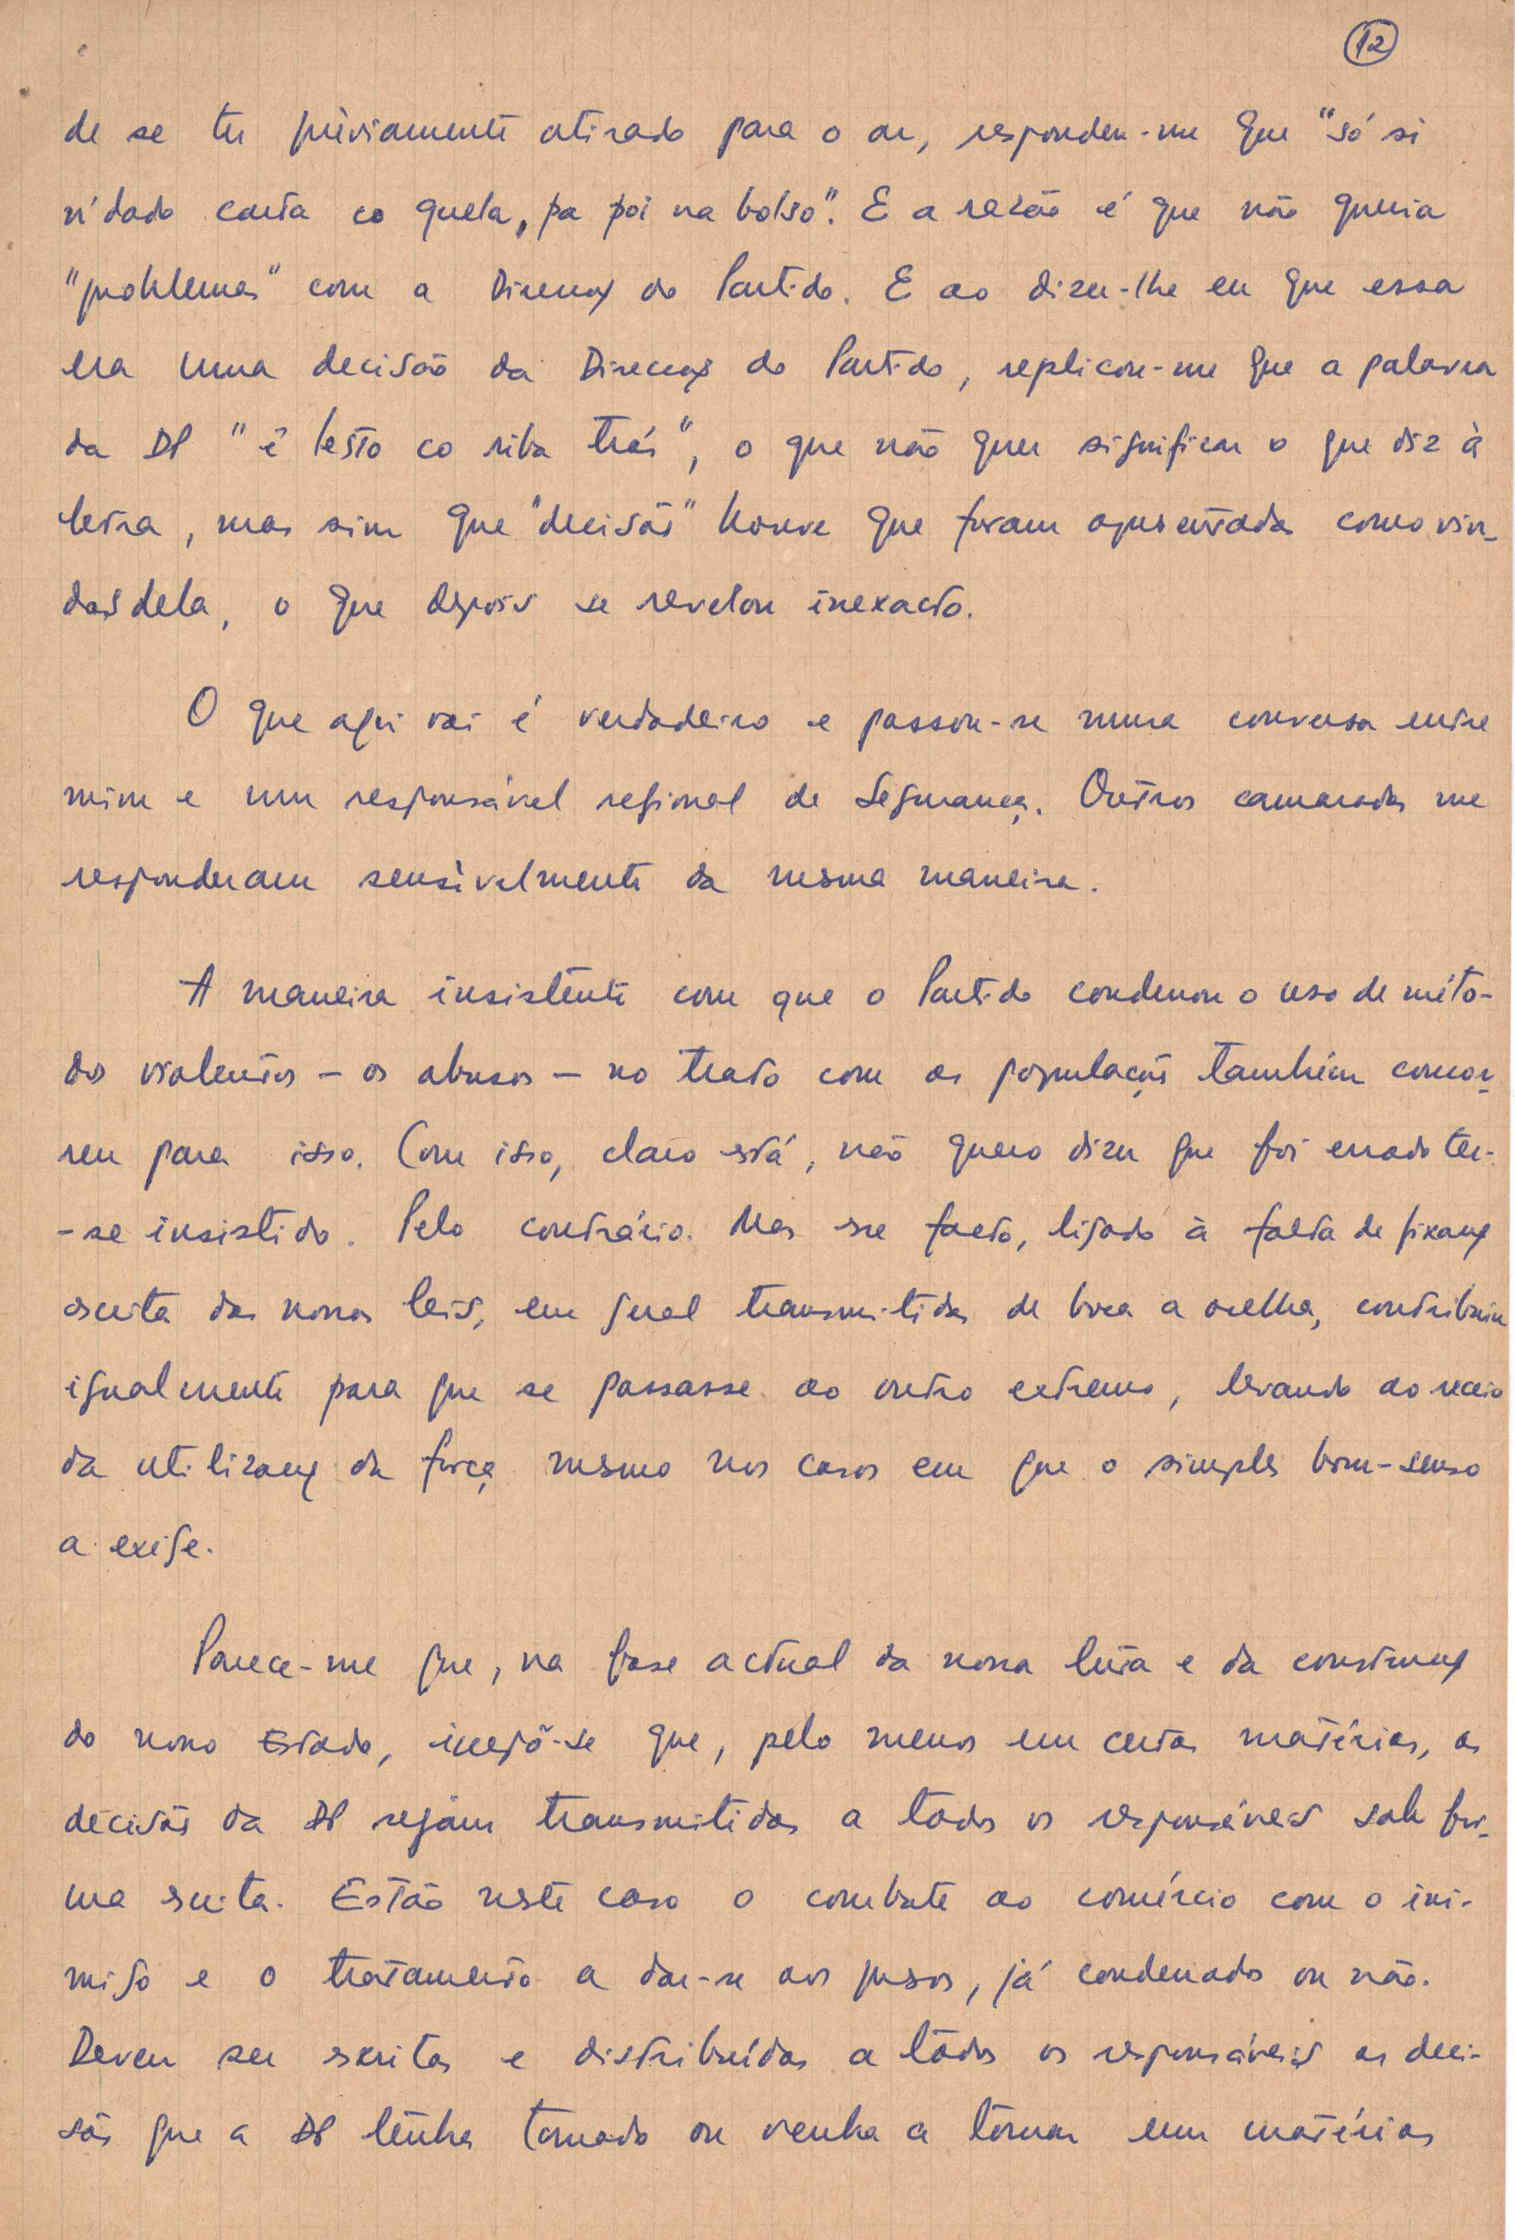 12
de se ter prèviamente atirado para o ar, respondeu-me que "só si
n'dado carta co quela, pa poi na bolso". E a razão é que não queria
"problemas" com a Direcção do Partido. E ao dizer-lhe eu que essa
era uma decisão da Direcção do Partido, replicou-me que a palavra
da DP "ê lesto co riba trás", o que não quer significar o que diz à
letra, mas sim que "decisões" houve que foram apresentadas como vin-
das dela, o que depois se revelou inexacto.
O que aqui vai é verdadeiro e passou-se numa conversa entre
mim e um responsável regional de Segurança. Outros camaradas me
responderam sensìvelmente da mesma maneira.
A maneira insistente com que o Partido condenou o uso de méto-
dos violentos - os abusos - no trato com as populações também concor-
reu para isso. Com isso, claro está, não quero dizer que foi errado ter-
-se insistido. Pelo contrário. Mas esse facto, ligado à falta de fixação
escrita das nossas leis, em geral transmitidas de boca a orelha, contribuiu
igualmente para que se passasse ao outro extremo, levando ao receio
da utilização da força mesmo nos casos em que o simples bom-senso
a exige.
Parece-me que, na fase actual da nossa luta e da construção
do nosso Estado, impõ-se que, pelo menos em certas matérias, as
decisões da DP sejam transmitidas a todos os responsáveis sob for-
ma escrita. Estão neste caso o combate ao comércio com o ini-
migo e o tratamento a dar-se aos presos, já condenados ou não.
Devem ser escritas e distribuídas a todos os responsáveis as deci-
sões que a DP tenha tomado ou venha a tomar em matérias